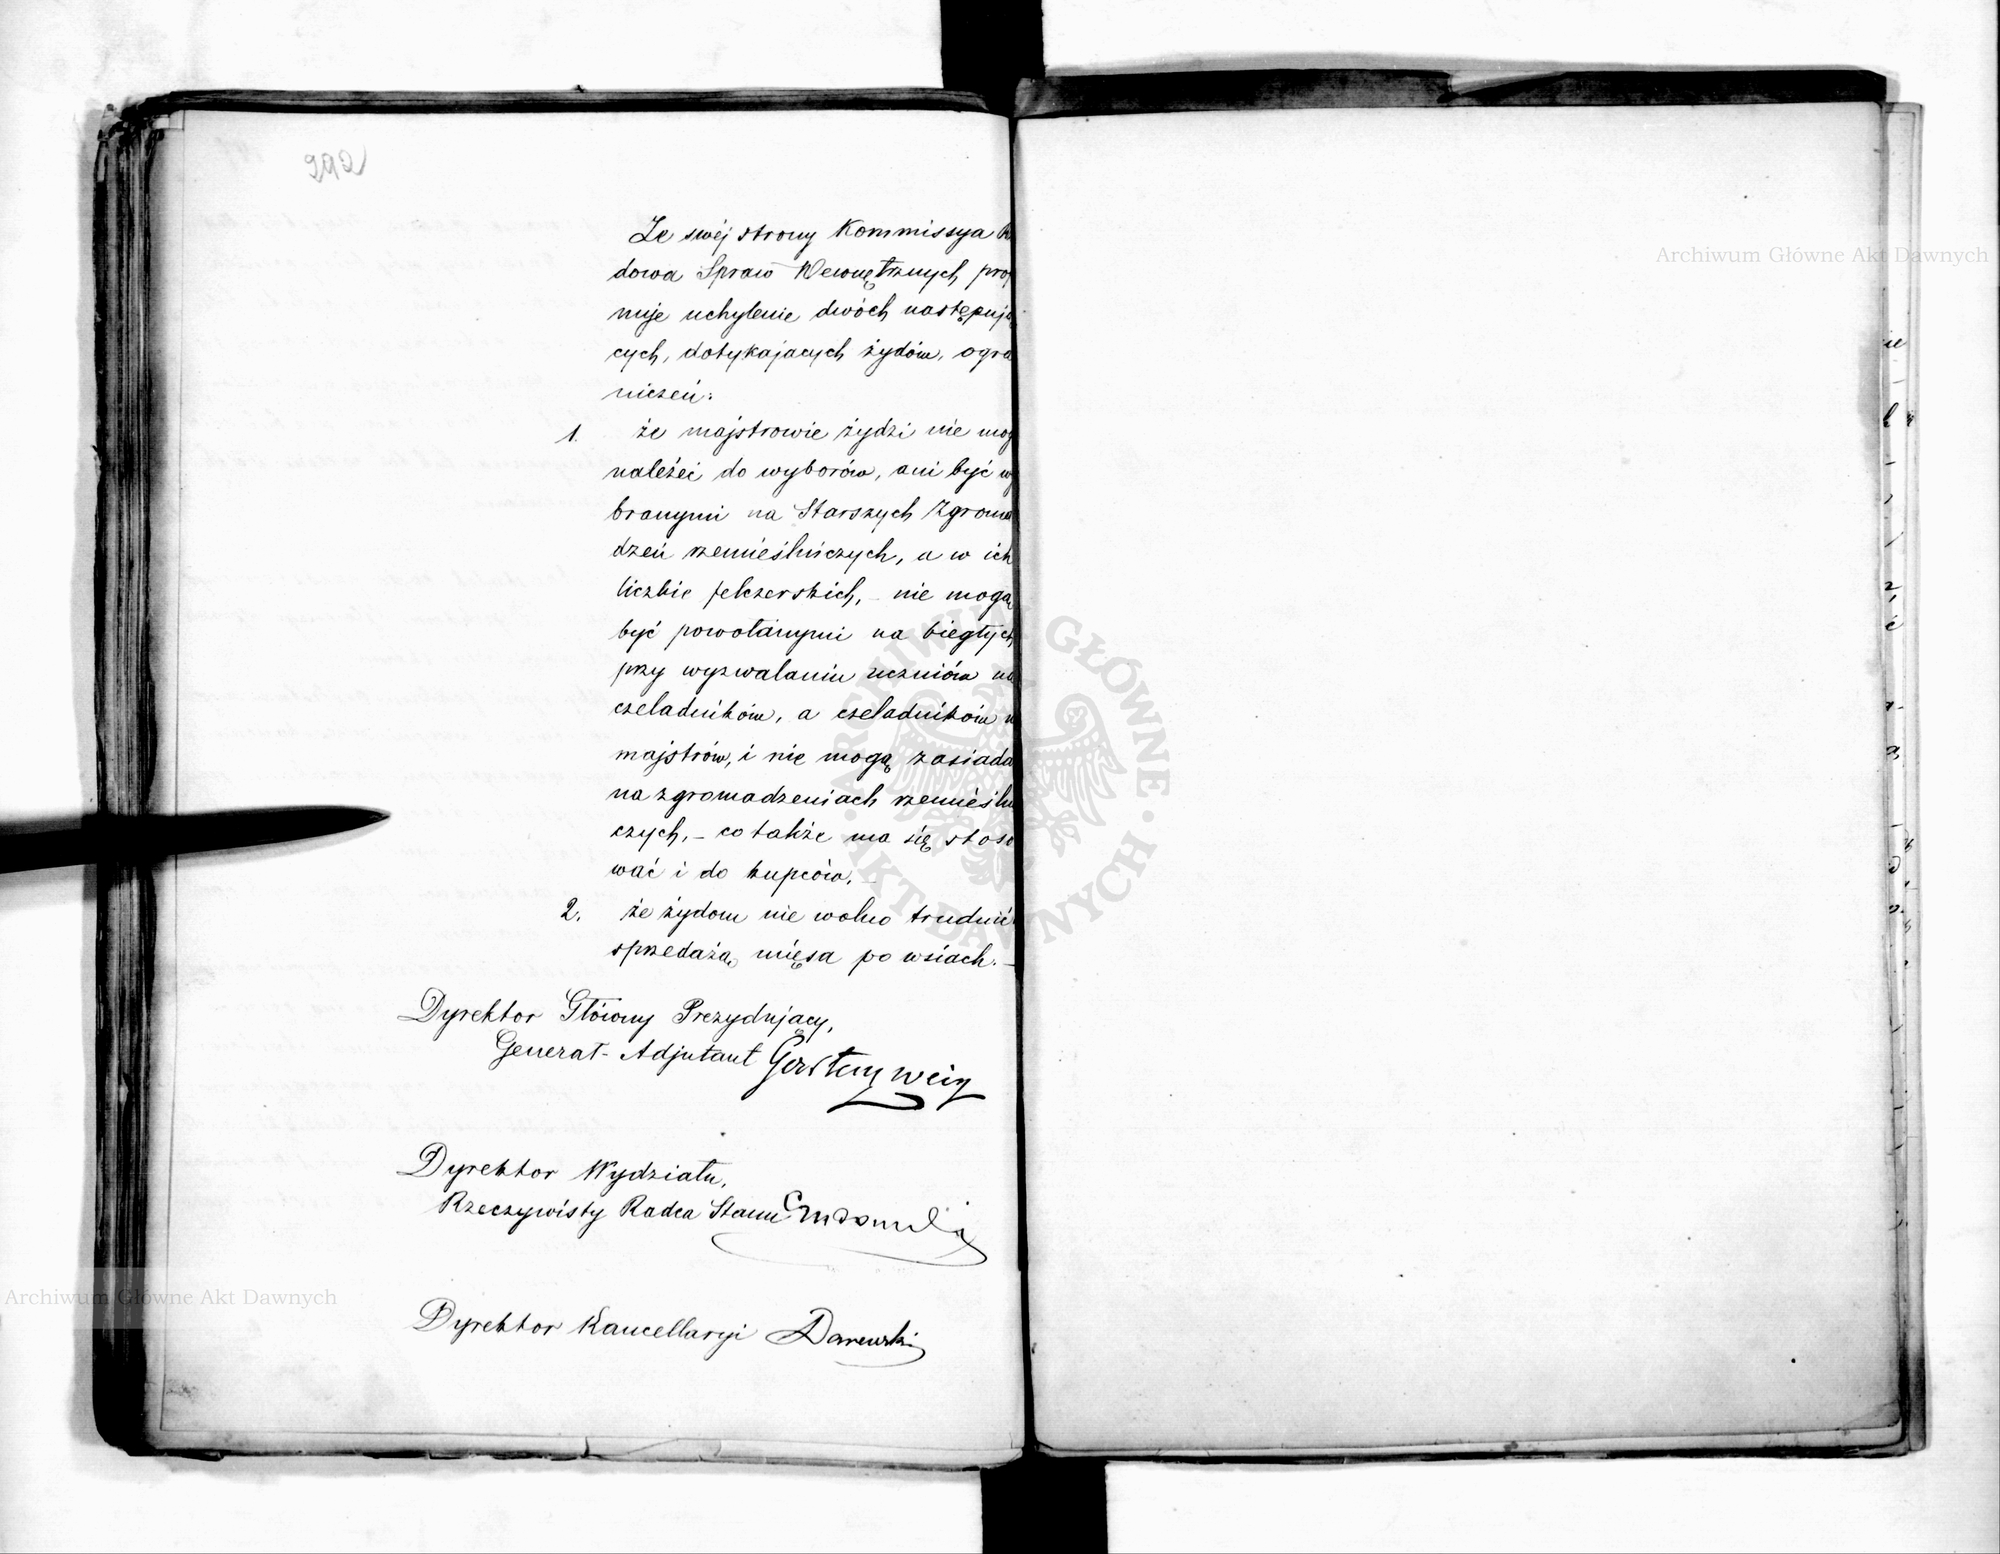 292
Ze swéj strony Kommissya R
dowa Spraw Wewnętrznych prop
nuje uchylenie dwóch następują
cych, dotykających żydów, ogra
niczeń:
1. że majstrowie żydzi nie mog
należéć do wyborów, ani być wy
branymi na Starszych Zgroma
dzeń rzemieślniczych, a w ich
liczbie felczerskich, – nie mogą
być powołanymi na biegłych
przy wyzwalaniu uczniów na
czeladników, a czeladników n
majstrów, i nie mogą zasiada
na zgromadzeniach rzemieśln
czych, – co także ma się stoso
wać i do kupców. –
2. że żydom nie wolno trudnić
sprzedażą mięsa po wsiach. –
Dyrektor Główny Prezydujący,
Generał-Adjutant Gerstenzweig
Dyrektor Wydziału,
Rzeczywisty Radca Stanu
Dyrektor Kancellaryi Darewski
Archiwum Główne Akt Dawnych
Archiwum Główne Akt Dawnych
ARCHIWUM GŁÓWNE · AKT DAWNYCH ·